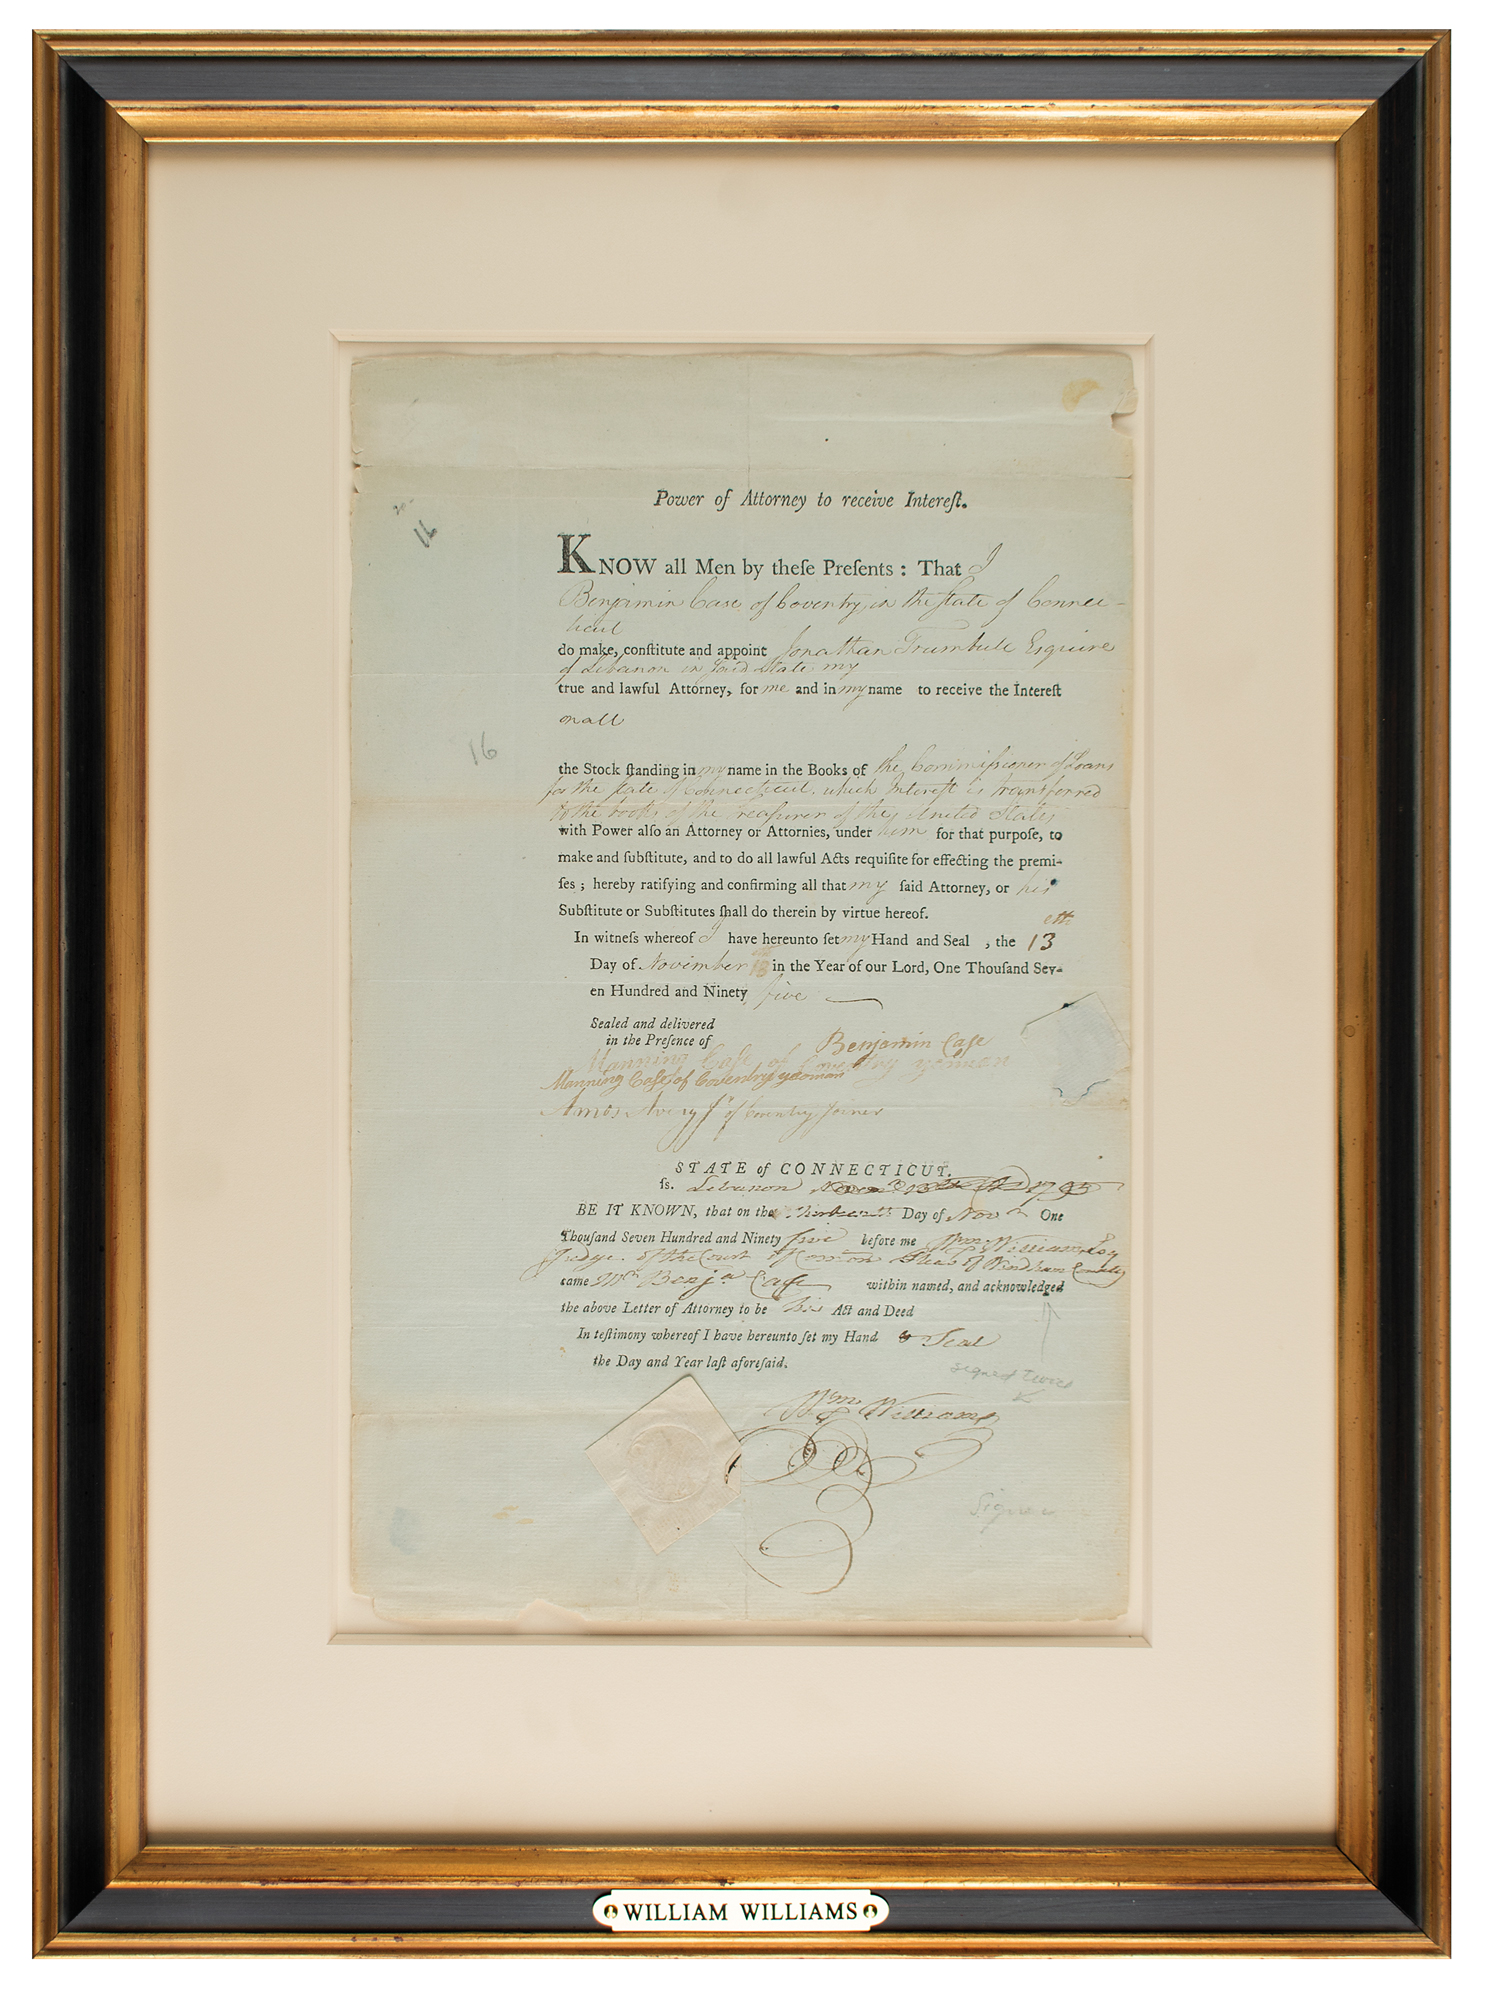 Power of Attorney to receive Intereſt.
11
KNOW all Men by theſe Preſents : That I
Benjamin Case of Coventry in the State of Connec-
ticut
do make, conſtitute and appoint Jonathan Trumbull Esquire
of Lebanon in said State my
true and lawful Attorney, for me and in my name to receive the Intereſt
on all
16
the Stock ſtanding in my name in the Books of the Commiſsioner of Loans
for the State of Connecticut. which Interest is transferred
to the books of the Treaſurer of the United States
with Power alſo an Attorney or Attornies, under him for that purpoſe, to
make and ſubſtitute, and to do all lawful Acts requiſite for effecting the premi-
ſes ; hereby ratifying and confirming all that my ſaid Attorney, or his
Subſtitute or Subſtitutes ſhall do therein by virtue hereof.
eth
In witneſs whereof I have hereunto ſet my Hand and Seal , the 13
Day of November 13 in the Year of our Lord, One Thouſand Sev-
en Hundred and Ninety five
Sealed and delivered
in the Preſence of
Benjamin Caſe
Manning Caſe of Coventry yeoman
Manning Caſe of Coventry yeoman
Amos Avery Jr of Coventry Joiner
STATE of CONNECTICUT.
ſs. Lebanon Novr 13th AD 1795
BE IT KNOWN, that on the thirteenth Day of Novr One
Thouſand Seven Hundred and Ninety five before me Wm Williams Esq
Judge of the Court of Common Pleas of Windham County
came Mr Benja Caſe within named, and acknowledged
the above Letter of Attorney to be his Act and Deed
In teſtimony whereof I have hereunto ſet my Hand & Seal
the Day and Year laſt aforeſaid.
signed twice
Wm Williams
Signer
WILLIAM WILLIAMS